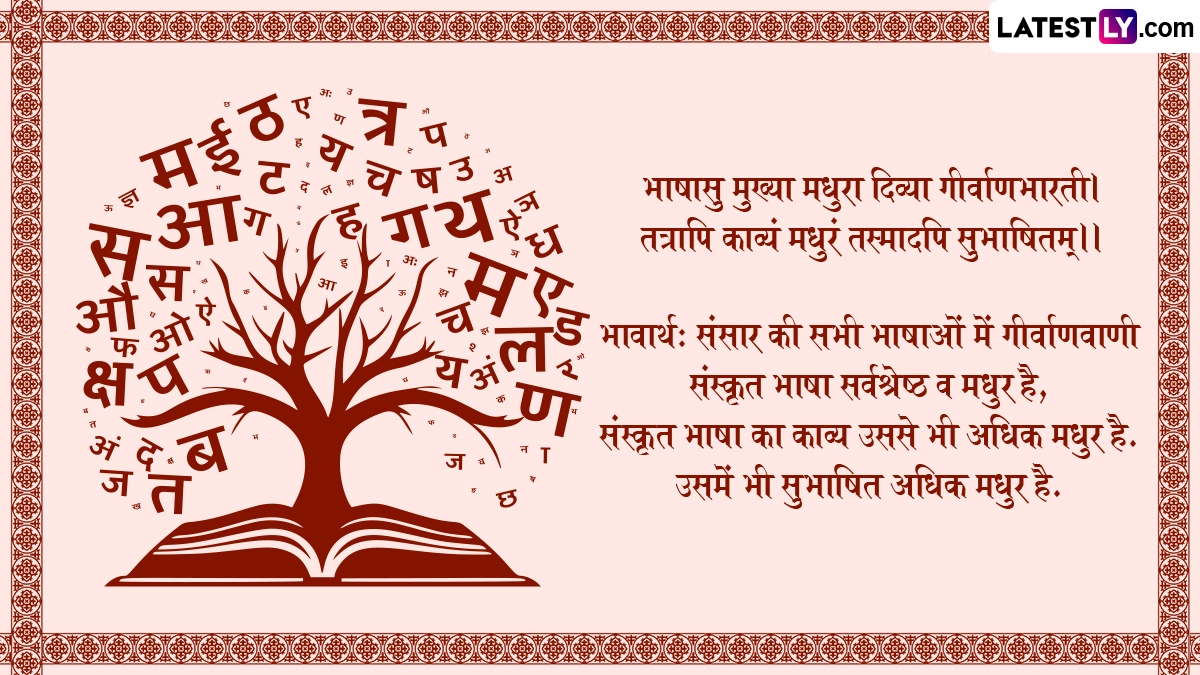 LATESTLY.com
भाषासु मुख्या मधुरा दिव्या गीर्वाणभारती।
तत्रापि काव्यं मधुरं तस्मादपि सुभाषितम्।।
भावार्थ: संसार की सभी भाषाओं में गीर्वाणवाणी
संस्कृत भाषा सर्वश्रेष्ठ व मधुर है,
संस्कृत भाषा का काव्य उससे भी अधिक मधुर है.
उसमें भी सुभाषित अधिक मधुर है.